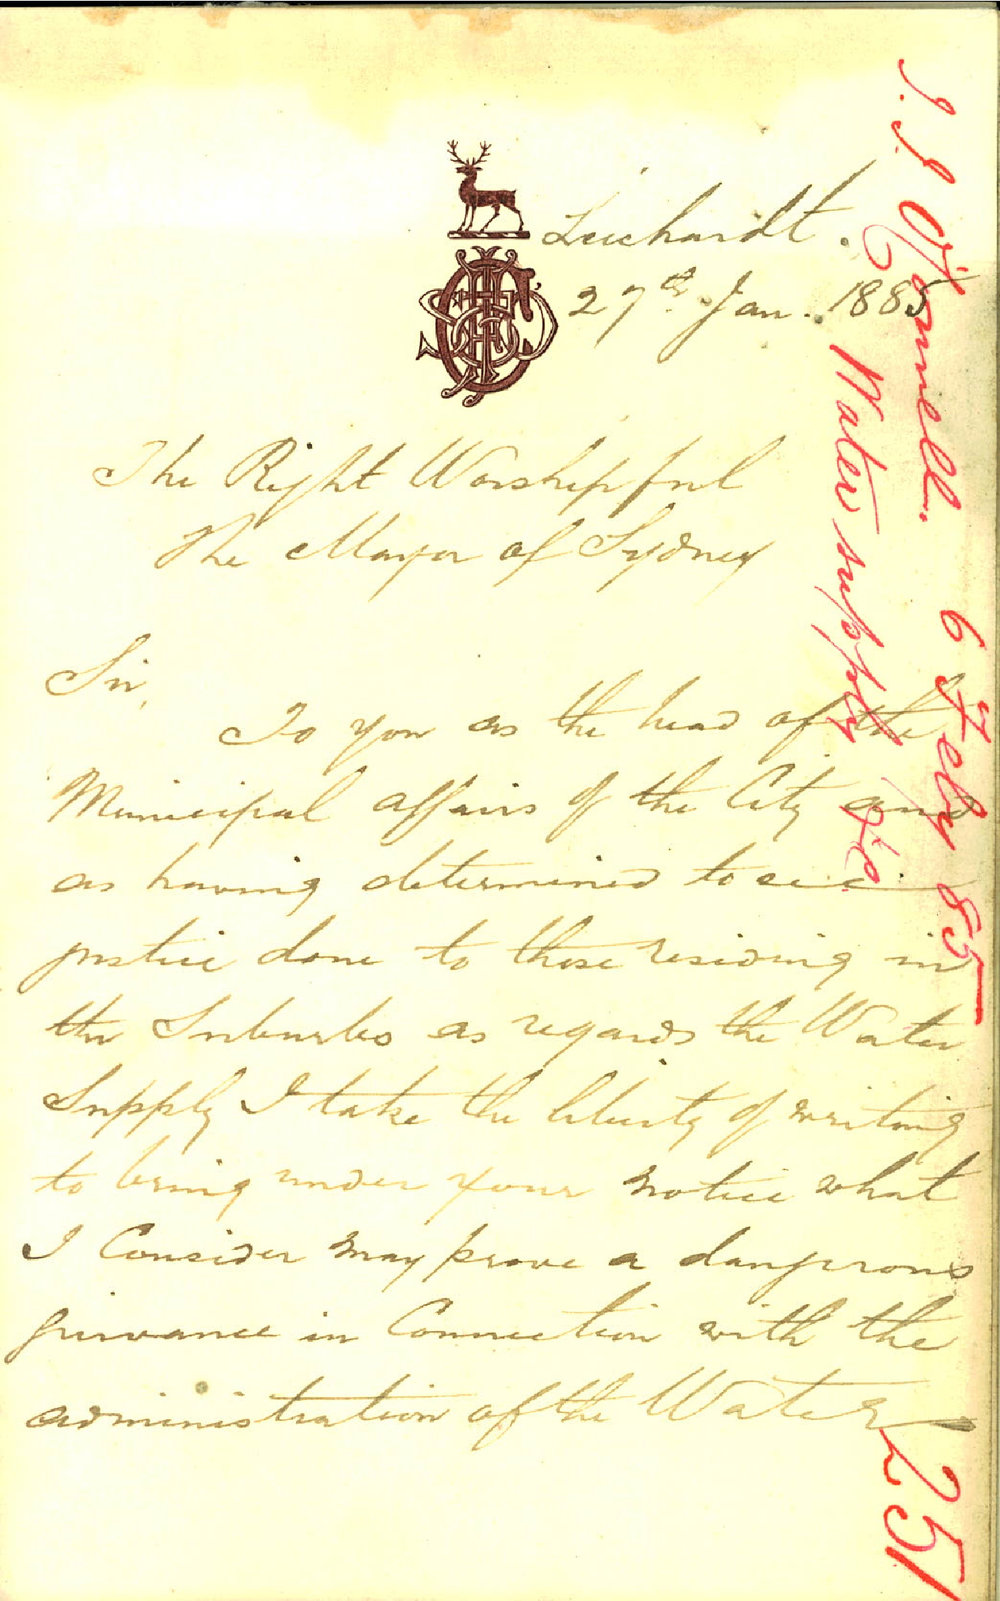 Leichardt.
27th. Jan. 1885
The Right Worshipful
The Mayor of Sydney
Sir,
To you as the head of the
Municipal affairs of the City and
as having determined to see
justice done to those residing in
the Suburbs as regards the Water
Supply I take the liberty of writing
to bring under your notice what
I Consider may prove a dangerous
grievance in Connection with the
administration of the Water
J. J. O'Connell.
6 Feby 85
Water supply
251